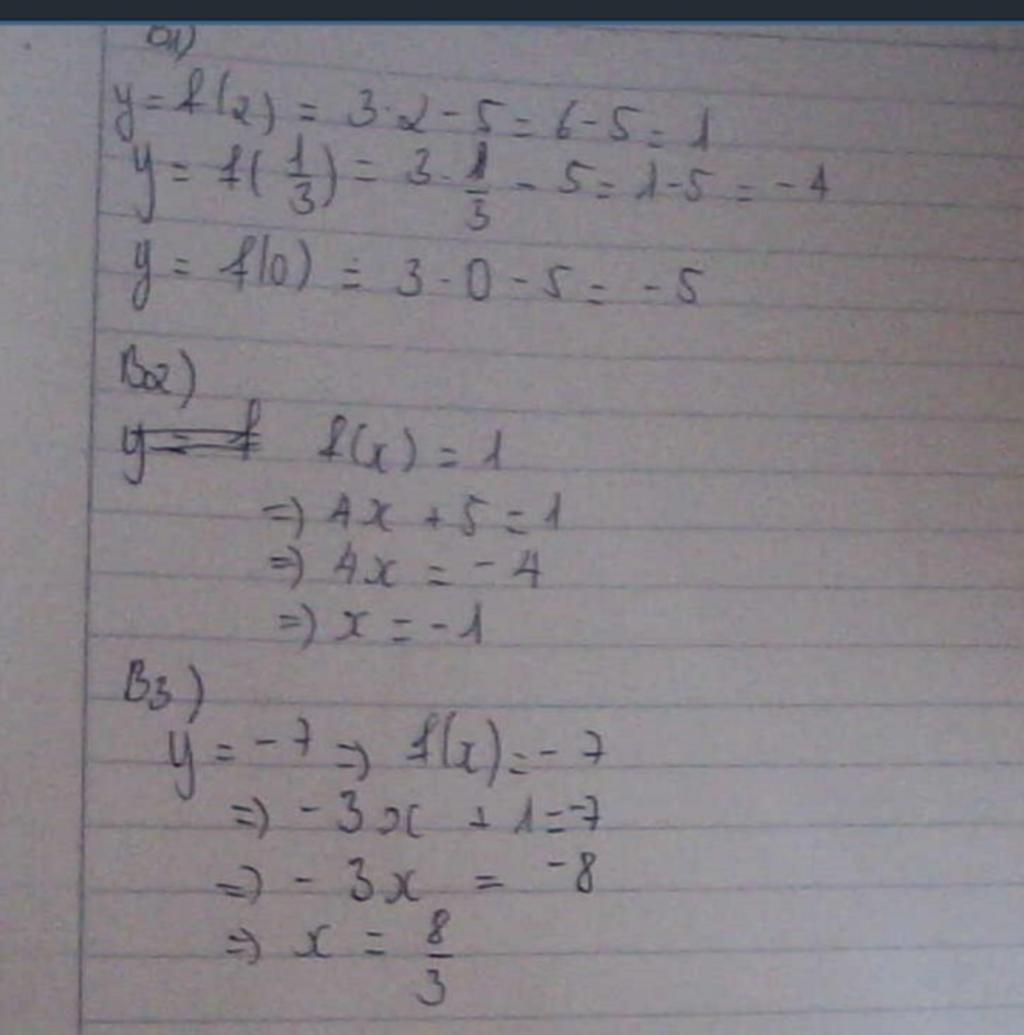 B1)
y = f(2) = 3·2 - 5 = 6 - 5 = 1
y = f(1/3) = 3·1/3 - 5 = 1 - 5 = -4
y = f(0) = 3·0 - 5 = -5
B2)
y = f f(x) = 1
=> 4x + 5 = 1
=> 4x = -4
=> x = -1
B3)
y = -7 => f(x) = -7
=> -3x + 1 = -7
=> -3x = -8
=> x = 8/3